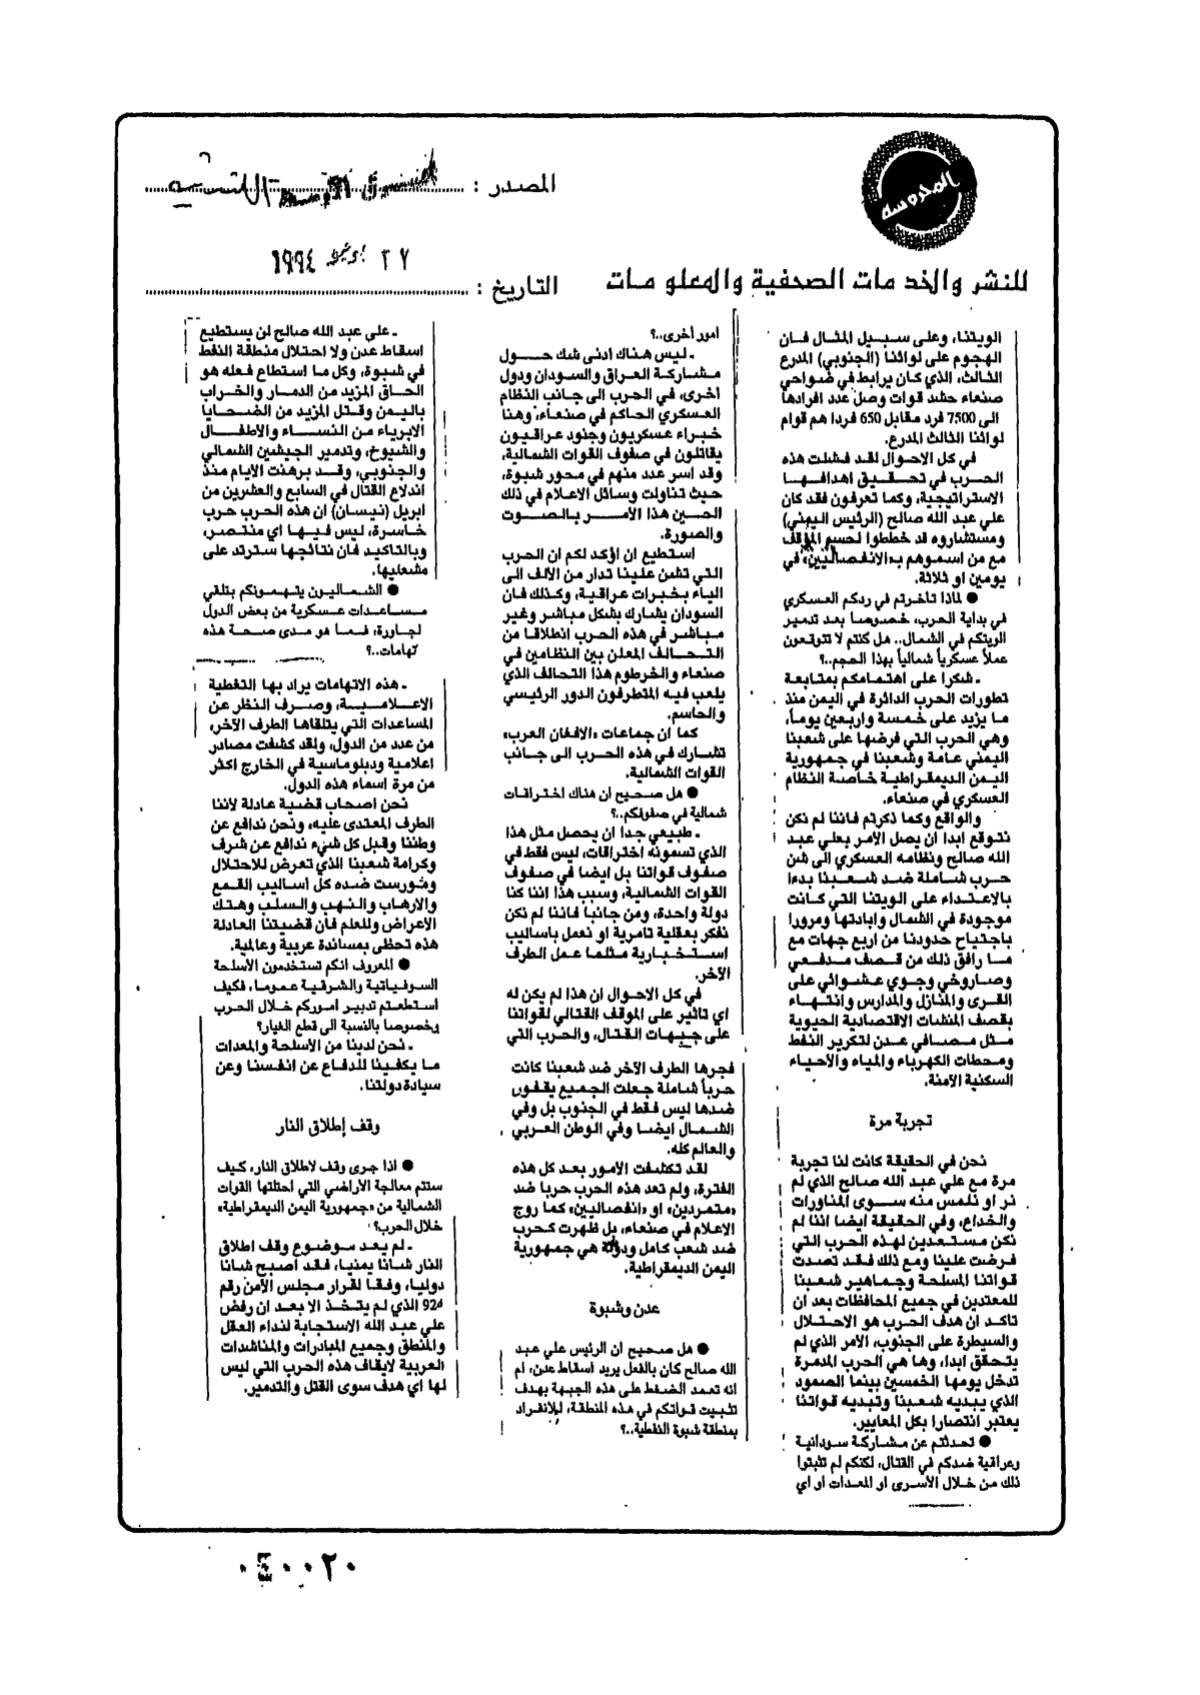 المحروسة
المصدر :
للنشر والخدمات الصحفية والمعلومات
التاريخ :
٢٧ يونيو ١٩٩٤
الويتنا، وعلى سبيل المثال فان
الهجوم على لوائنا (الجنوبي) المدرع
الثالث، الذي كان يرابط في ضواحي
صنعاء حشد قوات وصل عدد افرادها
الى 7500 فرد مقابل 650 فردا هم قوام
لوائنا الثالث المدرع.
في كل الاحوال لقد فشلت هذه
الحرب في تحقيق اهدافها
الاستراتيجية، وكما تعرفون فقد كان
علي عبد الله صالح (الرئيس اليمني)
ومستشاروه قد خططوا لحسم الموقف
مع من اسموهم بـ«الانفصاليين» في
يومين او ثلاثة.
● لماذا تأخرتم في ردكم العسكري
في بداية الحرب، خصوصا بعد تدمير
الويتكم في الشمال.. هل كنتم لا تتوقعون
عملاً عسكرياً شمالياً بهذا الحجم..؟
ـ شكرا على اهتمامكم بمتابعة
تطورات الحرب الدائرة في اليمن منذ
ما يزيد على خمسة واربعين يوماً،
وهي الحرب التي فرضها على شعبنا
اليمني عامة وشعبنا في جمهورية
اليمن الديمقراطية خاصة النظام
العسكري في صنعاء.
والواقع وكما ذكرتم فاننا لم نكن
نتوقع ابدا ان يصل الامر بعلي عبد
الله صالح ونظامه العسكري الى شن
حرب شاملة ضد شعبنا بدءا
بالاعتداء على الويتنا التي كانت
موجودة في الشمال وابادتها ومرورا
باجتياح حدودنا من اربع جهات مع
ما رافق ذلك من قصف مدفعي
وصاروخي وجوي عشوائي على
القرى والمنازل والمدارس وانتهاء
بقصف المنشآت الاقتصادية الحيوية
مثل مصافي عدن لتكرير النفط
ومحطات الكهرباء والمياه والاحياء
السكنية الآمنة.
تجربة مرة
نحن في الحقيقة كانت لنا تجربة
مرة مع علي عبد الله صالح الذي لم
نر او نلمس منه سوى المناورات
والخداع، وفي الحقيقة ايضا اننا لم
نكن مستعدين لهذه الحرب التي
فرضت علينا ومع ذلك فقد تصدت
قواتنا المسلحة وجماهير شعبنا
للمعتدين في جميع المحافظات بعد ان
تأكد ان هدف الحرب هو الاحتلال
والسيطرة على الجنوب، الأمر الذي لم
يتحقق ابدا، وها هي الحرب المدمرة
تدخل يومها الخمسين بينما الصمود
الذي يبديه شعبنا وتبديه قواتنا
يعتبر انتصارا بكل المعايير.
● تحدثتم عن مشاركة سودانية
وعراقية ضدكم في القتال، لكنكم لم تثبتوا
ذلك من خلال الأسرى او المعدات او اي
امور أخرى..؟
ـ ليس هناك ادنى شك حول
مشاركة العراق والسودان ودول
أخرى، في الحرب الى جانب النظام
العسكري الحاكم في صنعاء، وهنا
خبراء عسكريون وجنود عراقيون
يقاتلون في صفوف القوات الشمالية،
وقد اسر عدد منهم في محور شبوة،
حيث تناولت وسائل الاعلام في ذلك
الحين هذا الأمر بالصوت
والصورة.
استطيع ان اؤكد لكم ان الحرب
التي تشن علينا تدار من الالف الى
الياء بخبرات عراقية، وكذلك فان
السودان يشارك بشكل مباشر وغير
مباشر في هذه الحرب انطلاقا من
التحالف المعلن بين النظامين في
صنعاء والخرطوم هذا التحالف الذي
يلعب فيه المتطرفون الدور الرئيسي
والحاسم.
كما ان جماعات «الافغان العرب»
تشارك في هذه الحرب الى جانب
القوات الشمالية.
● هل صحيح ان هناك اختراقات
شمالية في صفوفكم..؟
ـ طبيعي جدا ان يحصل مثل هذا
الذي تسمونه اختراقات، ليس فقط في
صفوف قواتنا بل ايضا في صفوف
القوات الشمالية، وسبب هذا اننا كنا
دولة واحدة، ومن جانبا فاننا لم نكن
نفكر بعقلية تآمرية او نعمل باساليب
استخبارية مثلما عمل الطرف
الآخر.
في كل الاحوال ان هذا لم يكن له
اي تأثير على الموقف القتالي لقواتنا
على جبهات القتال، والحرب التي
فجرها الطرف الآخر ضد شعبنا كانت
حرباً شاملة جعلت الجميع يقفون
ضدها ليس فقط في الجنوب بل وفي
الشمال ايضا وفي الوطن العربي
والعالم كله.
لقد تكشفت الأمور بعد كل هذه
الفترة، ولم تعد هذه الحرب حربا ضد
«متمردين» او «انفصاليين» كما روج
الاعلام في صنعاء، بل ظهرت كحرب
ضد شعب كامل ودولة هي جمهورية
اليمن الديمقراطية.
عدن وشبوة
● هل صحيح ان الرئيس علي عبد
الله صالح كان بالفعل يريد اسقاط عدن، ام
انه تعمد الضغط على هذه الجبهة بهدف
تثبيت قواتكم في هذه المنطقة، للانفراد
بمنطقة شبوة النفطية..؟
ـ علي عبد الله صالح لن يستطيع
اسقاط عدن ولا احتلال منطقة النفط
في شبوة، وكل ما استطاع فعله هو
الحاق المزيد من الدمار والخراب
باليمن وقتل المزيد من الضحايا
الابرياء من النساء والاطفال
والشيوخ، وتدمير الجيشين الشمالي
والجنوبي، وقد برهنت الايام منذ
اندلاع القتال في السابع والعشرين من
ابريل (نيسان) ان هذه الحرب حرب
خاسرة، ليس فيها اي منتصر،
وبالتأكيد فان نتائجها سترتد على
مشعليها.
● الشماليون يتهمونكم بتلقي
مساعدات عسكرية من بعض الدول
لجاورة، فما هو مدى صحة هذه
تهامات..؟
ـ هذه الاتهامات يراد بها التغطية
الاعلامية، وصرف النظر عن
المساعدات التي يتلقاها الطرف الآخر،
من عدد من الدول، ولقد كشفت مصادر
اعلامية ودبلوماسية في الخارج اكثر
من مرة اسماء هذه الدول.
نحن اصحاب قضية عادلة لأننا
الطرف المعتدى عليه، ونحن ندافع عن
وطننا وقبل كل شيء ندافع عن شرف
وكرامة شعبنا الذي تعرض للاحتلال
وشورست ضده كل اساليب القمع
والارهاب والنهب والسلب وهتك
الأعراض وللعلم فان قضيتنا العادلة
هذه تحظى بمساندة عربية وعالمية.
● المعروف انكم تستخدمون الأسلحة
السوفياتية والشرقية عموما، فكيف
استطعتم تدبير اموركم خلال الحرب
وخصوصا بالنسبة الى قطع الغيار؟
ـ نحن لدينا من الأسلحة والمعدات
ما يكفينا للدفاع عن انفسنا وعن
سيادة دولتنا.
وقف إطلاق النار
● اذا جرى وقف لاطلاق النار، كيف
ستتم معالجة الأراضي التي احتلتها القوات
الشمالية من «جمهورية اليمن الديمقراطية»
خلال الحرب؟
ـ لم يعد موضوع وقف اطلاق
النار شأنا يمنيا، فقد أصبح شأنا
دوليا، وفقا لقرار مجلس الأمن رقم
924 الذي لم يتخذ الا بعد ان رفض
علي عبد الله الاستجابة لنداء العقل
والمنطق وجميع المبادرات والمناشدات
العربية لايقاف هذه الحرب التي ليس
لها أي هدف سوى القتل والتدمير.